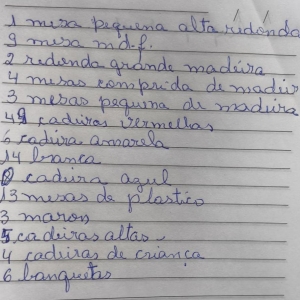 1 mesa pequena alta redonda
9 mesa m.d.f.
2 redonda grande madeira
4 mesas comprida de madeir
3 mesas pequina de madeira
49 cadeiras vermellas
6 cadeira amarela
14 branca
cadeira azul
13 mesas de plastico
3 maron
5 cadeiras altas
4 cadeiras de criança
6 banquetas